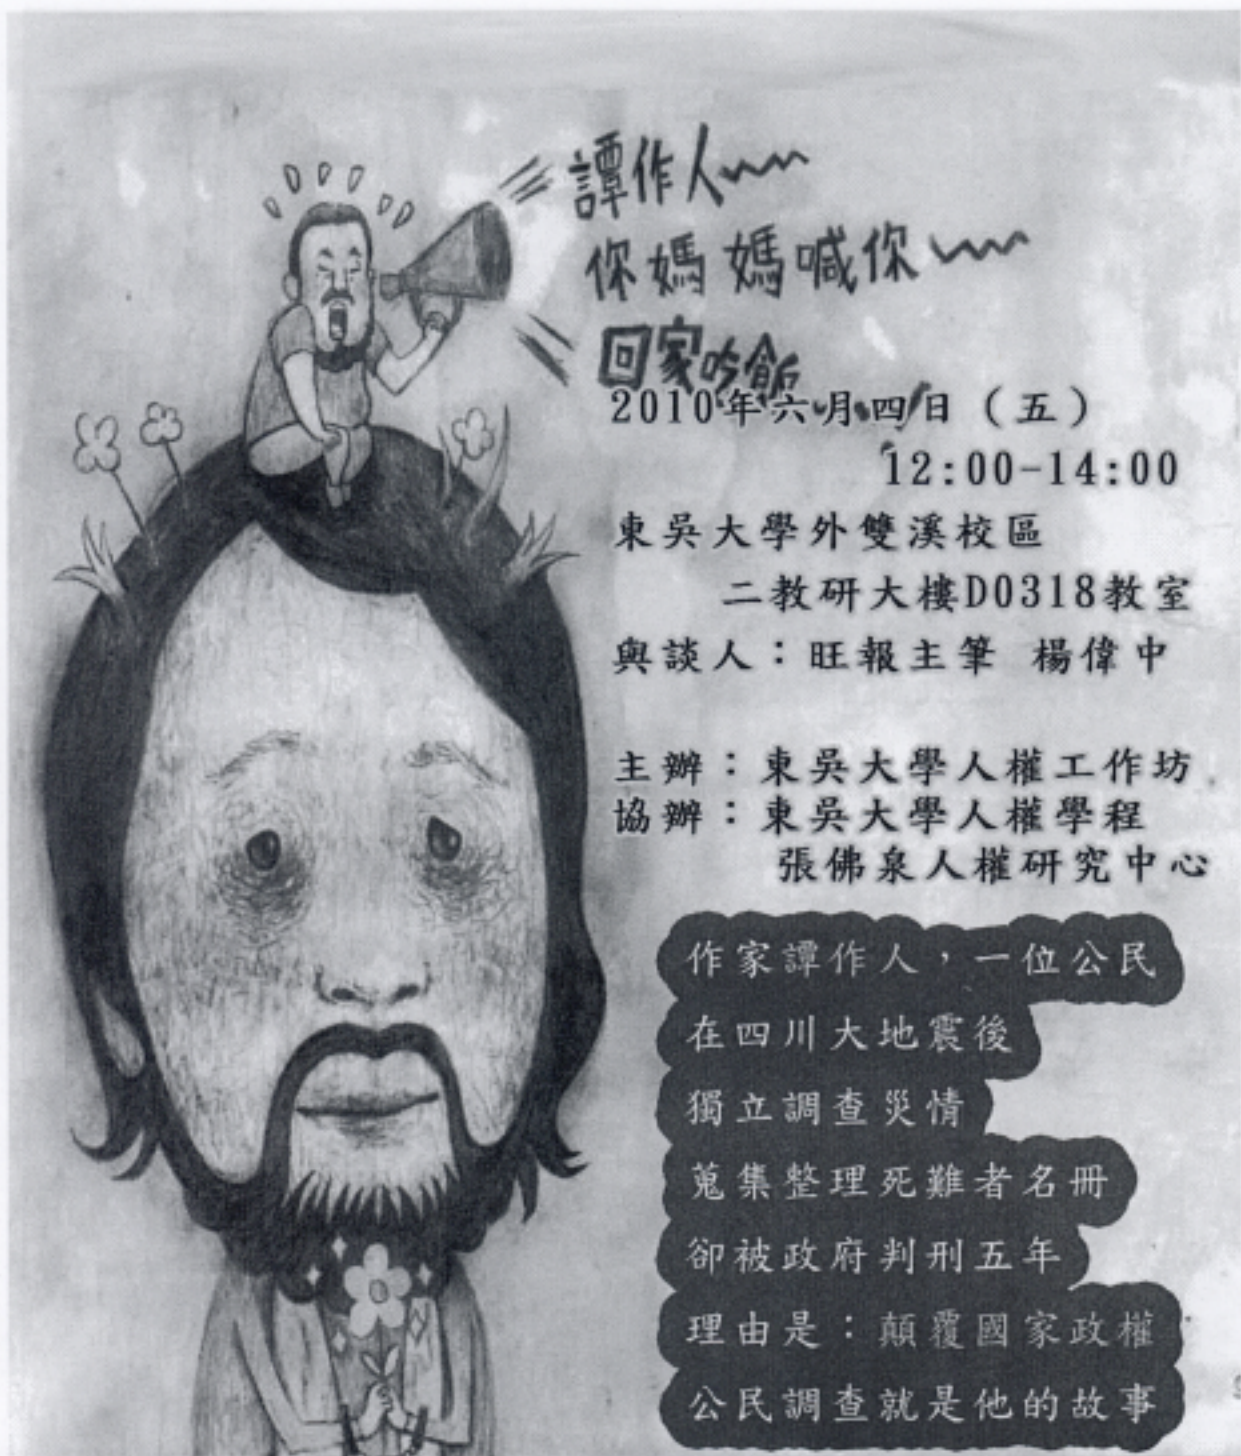 譚作人
你媽媽喊你
回家吃飯
2010年六月四日（五）
12:00-14:00
東吳大學外雙溪校區
二教研大樓D0318教室
與談人：旺報主筆 楊偉中
主辦：東吳大學人權工作坊
協辦：東吳大學人權學程
張佛泉人權研究中心
作家譚作人，一位公民
在四川大地震後
獨立調查災情
蒐集整理死難者名冊
卻被政府判刑五年
理由是：顛覆國家政權
公民調查就是他的故事